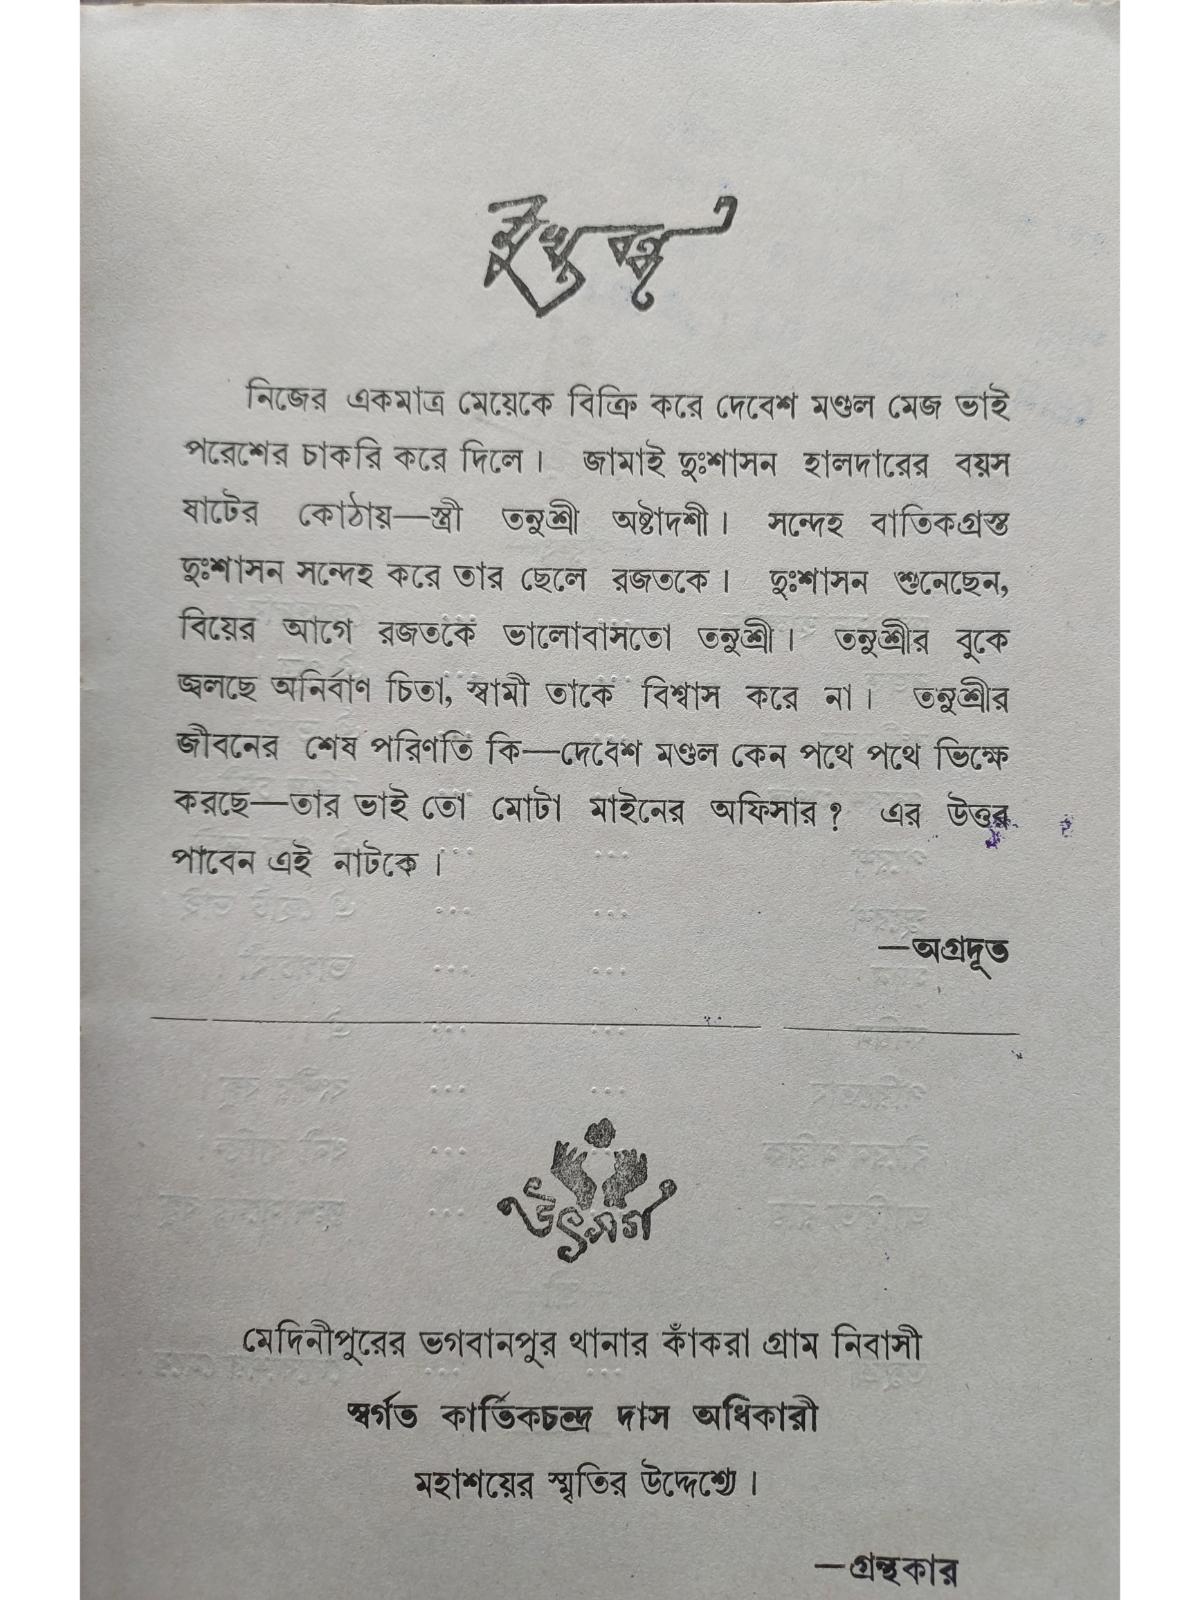 মুখবন্ধ
নিজের একমাত্র মেয়েকে বিক্রি করে দেবেশ মণ্ডল মেজ ভাই
পরেশের চাকরি করে দিলে। জামাই দুঃশাসন হালদারের বয়স
ষাটের কোঠায়—স্ত্রী তনুশ্রী অষ্টাদশী। সন্দেহ বাতিকগ্রস্ত
দুঃশাসন সন্দেহ করে তার ছেলে রজতকে। দুঃশাসন শুনেছেন,
বিয়ের আগে রজতকে ভালোবাসতো তনুশ্রী। তনুশ্রীর বুকে
জ্বলছে অনির্বাণ চিতা, স্বামী তাকে বিশ্বাস করে না। তনুশ্রীর
জীবনের শেষ পরিণতি কি—দেবেশ মণ্ডল কেন পথে পথে ভিক্ষে
করছে—তার ভাই তো মোটা মাইনের অফিসার? এর উত্তর
পাবেন এই নাটকে।
—অগ্রদূত
উৎসর্গ
মেদিনীপুরের ভগবানপুর থানার কাঁকরা গ্রাম নিবাসী
স্বর্গত কার্তিকচন্দ্র দাস অধিকারী
মহাশয়ের স্মৃতির উদ্দেশ্যে।
—গ্রন্থকার